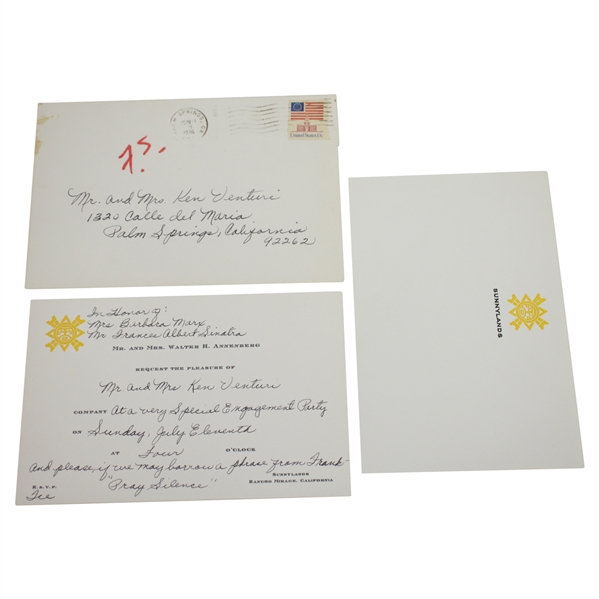 F.S.
Mr. and Mrs. Ken Venturi
1320 Calle del Maria
Palm Springs, California
92262
In Honor of:
Mrs Barbara Marx
Mr Frances Albert Sinatra
MR. AND MRS. WALTER H. ANNENBERG
REQUEST THE PLEASURE OF
Mr and Mrs Ken Venturi
COMPANY At a very Special Engagement Party
ON Sunday, July Eleventh
AT Four O'CLOCK
And please, if we may borrow a phrase from Frank
"Pray Silence"
SUNNYLANDS
RANCHO MIRAGE, CALIFORNIA
R.S.V.P.
SUNNYLANDS